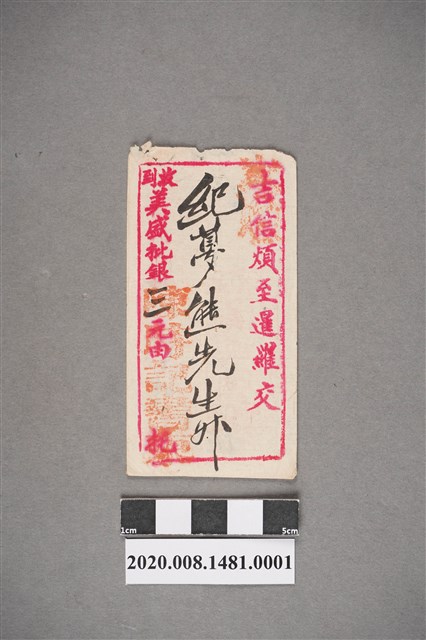 吉信煩至暹羅交
紀夢熊先生升
收到美盛批銀三元由
托
1cm
5cm
2020.008.1481.0001